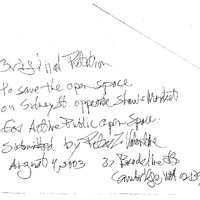 Original Petition
to save the open space
on Sidney St. opposite Shaw's Market
for Active Public open Space.
submitted by Peter
August 4, 2003 Brookline St
Cambridge, MA 0213